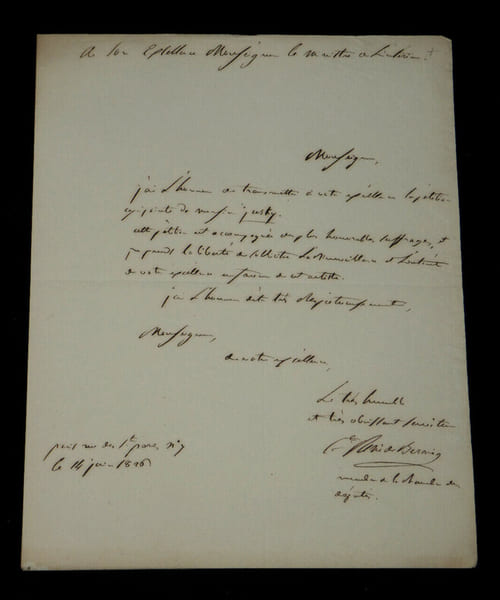 A Son Excellence Monseigneur le ministre de l'intérieur
Monseigneur,
j'ai l'honneur de transmettre à votre excellence la pétition
cyjointe de monsieur
cette pétition est accompagnée des plus honorables suffrages, et
je prends la liberté de solliciter la Bienveillance et l'intérêt
de votre excellence en faveur de cet artiste.
j'ai l'honneur d'être très Respectueusement,
Monseigneur,
de votre excellence,
Le très humble
et très obéissant serviteur
paris rue des Sts peres n° 7
le 14 juin
membre de la chambre des
députés.